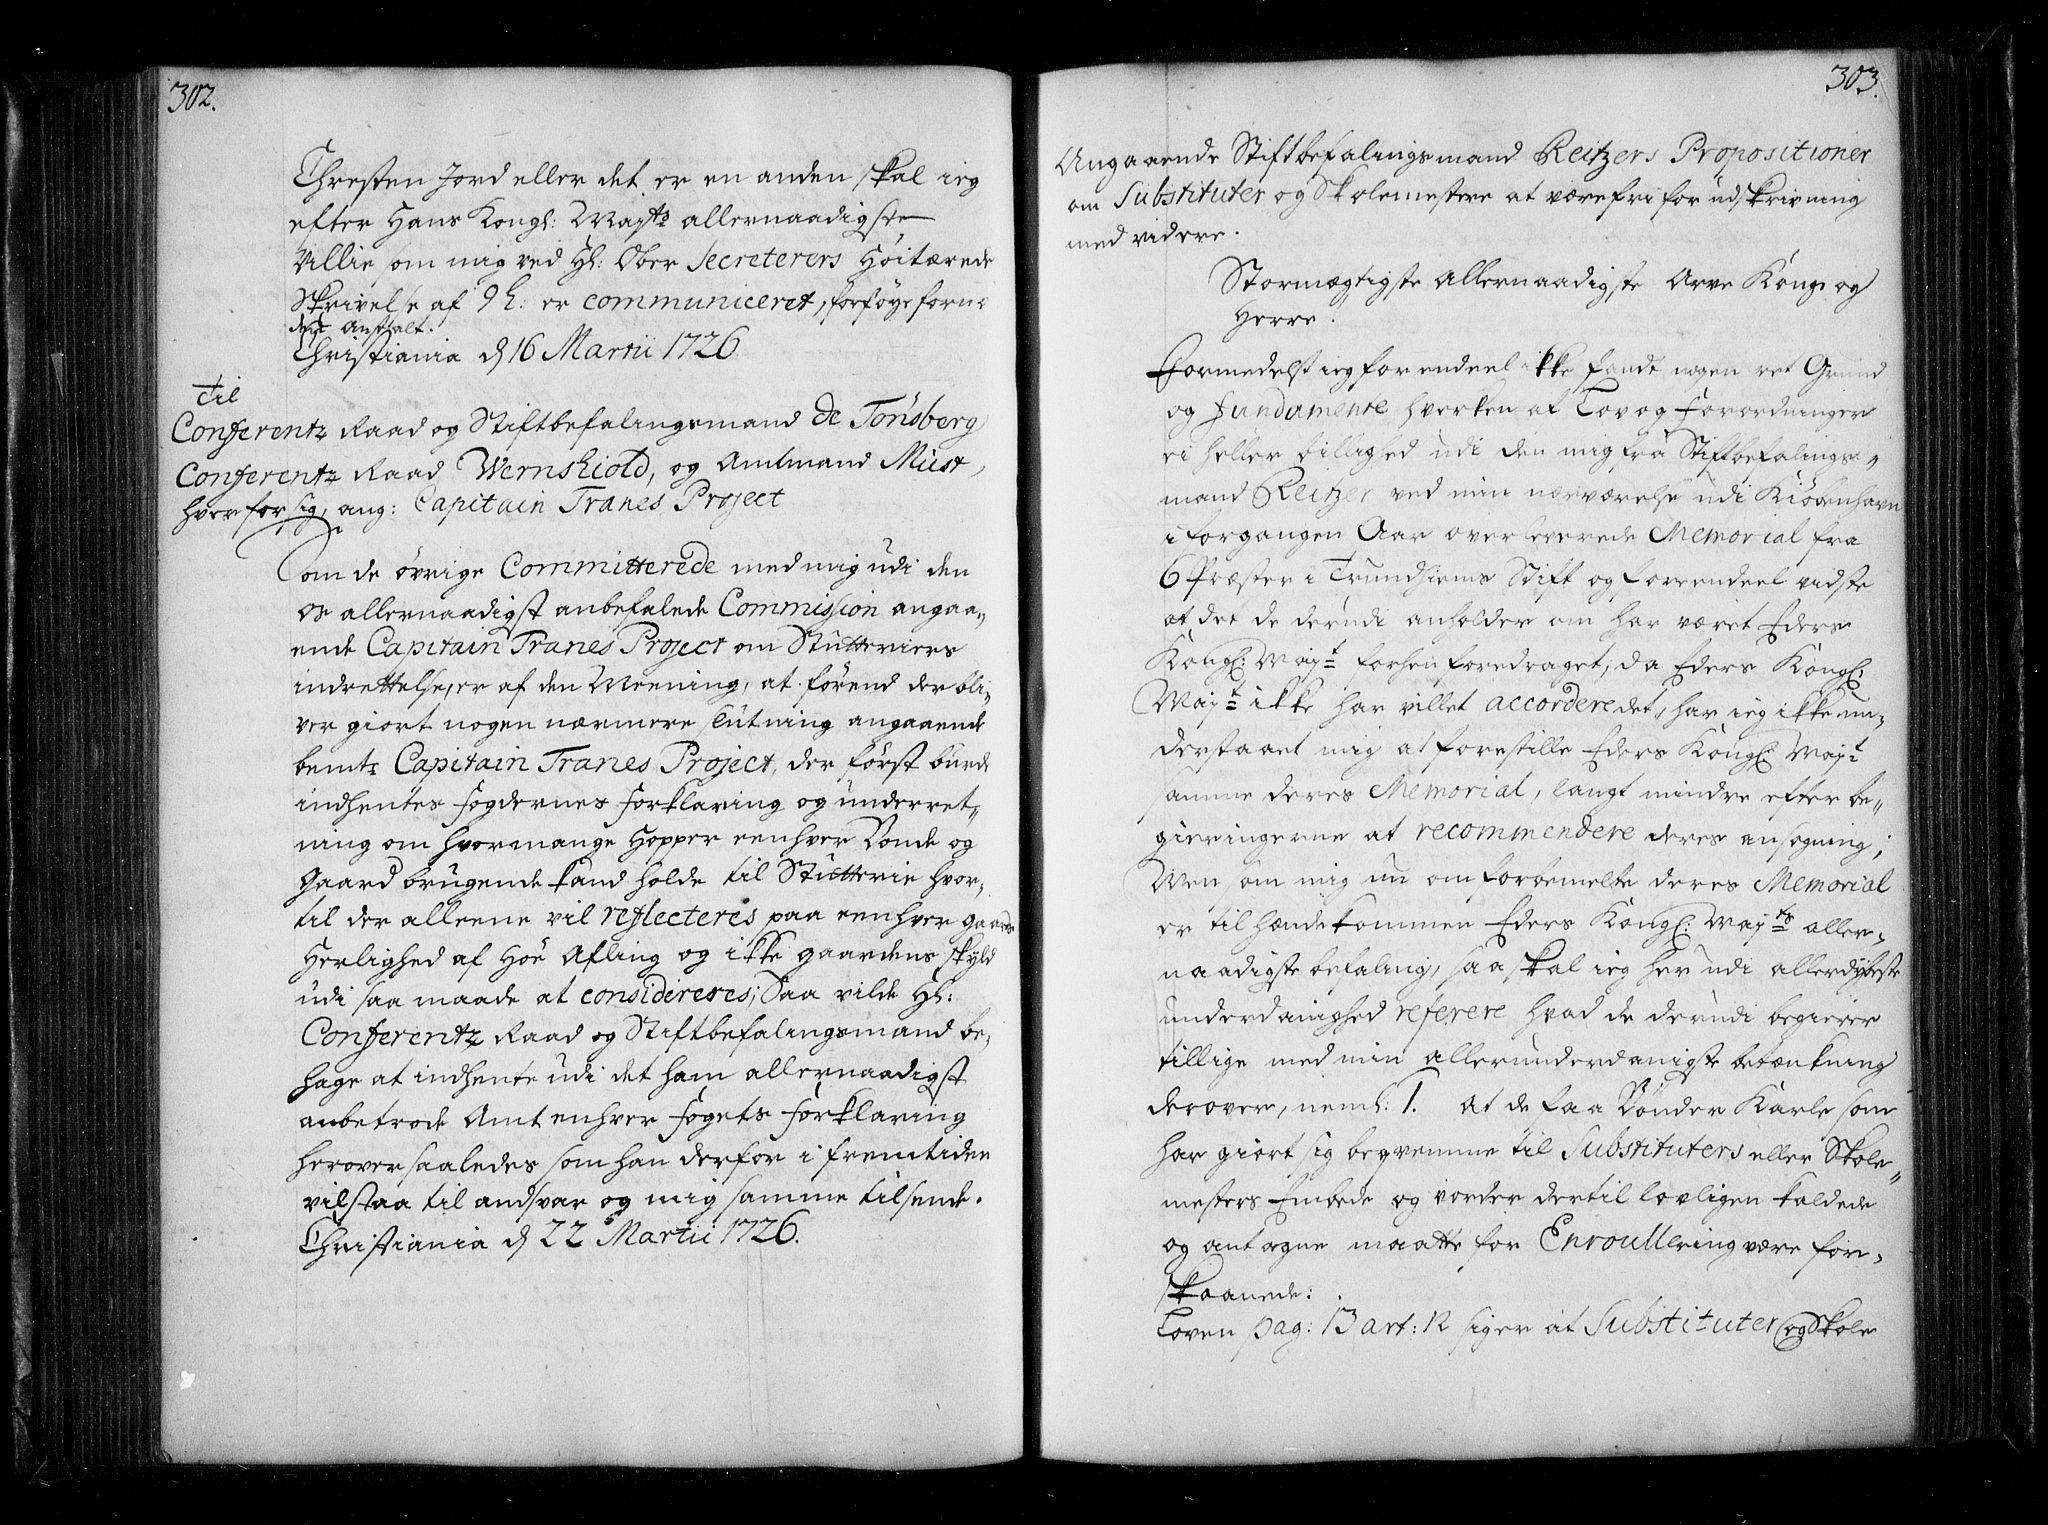 302.
Christen Jord eller det er en anden skal ieg
efter Hans Kongl: Mayts allernaadigste
Villie som mig ved Hl: Ober Secreterers Höitærede
Skrivelse af 9 h: er communiceret, forföye forn:
den Anstalt.
Christiania d 16 Martii 1726
Til
Conferentz Raad og Stiftbefalingsmand de Tonsberg
Conferentz Raad Wernskiold, og Amtmand Must,
hver for sig, ang: Capitain Tranes Project
Som de övrige Committerede med mig udi den
os allernaadigst anbefalede Commission angaa„
ende Capitain Tranes Project om Stutteriers
indrettelse, er af den Meening, at förend der bli„
ver giort nogen nærmere slutning angaaende
bemte Capitain Tranes Project, der först burde
indhentes fogdernes forklaring og underret„
ning om hvormange Hopper eenhver Bonde og
Gaard brugende kand holde til Stutterie hvor„
til der alleene vil reflecteres paa eenhver gaards
Herlighed af Höe Afling og ikke gaardens skyld
udi saa maade at considereres; Saa vilde Hl:
Conferentz Raad og Stiftbefalingsmand be„
hage at indhente udi det ham allernaadigst
anbetrode Amt enhver fogets forklaring
herover saaledes som han derfor i fremtiden
vil staa til andsvar og mig samme tilsende.
Christiania d 22 Martii 1726.
303.
Angaaende Stiftbefalingsmand Reitzers Propositioner
om Substituter og Skolemestere at være fri for udskrivning
med videre.
Stormægtigste Allernaadigste Arve Konge og
Herre.
Formedelst ieg for endeel ikke fandt nogen ret Grund
og fundamente hverken af Lov og Forordninger
ei heller billighed udi den mig fra Stiftbefalings„
mand Reitzer ved min nærværelse udi Kiöbenhavn
i forgangen Aar overleverede Memorial fra
6 Præster i Trundhiems Stift og for endeel vidste
at det de derudi anholder om har været Eders
Kongl: Mayt forhen foredraget, da Eders Kongl:
Mayt ikke har villet accordere det, har ieg ikke un„
derstaaet mig at forestille Eders Kongl: Mayt
samme deres Memorial, langt mindre efter be„
gieringerne at recommendere deres ansogning;
Men som mig nu om forbemelte deres Memorial
er tilhænde kommen Eders Kongl: Mayts aller„
naadigste befaling, saa skal ieg her udi allerdybeste
underdanighed referere hvad de derudi begierer
tillige med min allerunderdanigste betænkning
derover, neml: 1. At de faa Bönder Karle som
har giort sig beqvemme til Substituters eller Skole„
mesters Embede og vorder dertil lovligen kaldede
og antagne maatte for Enroullering være for„
skaanede:
Loven pag: 13 art: 12 siger at Substituter og Skole